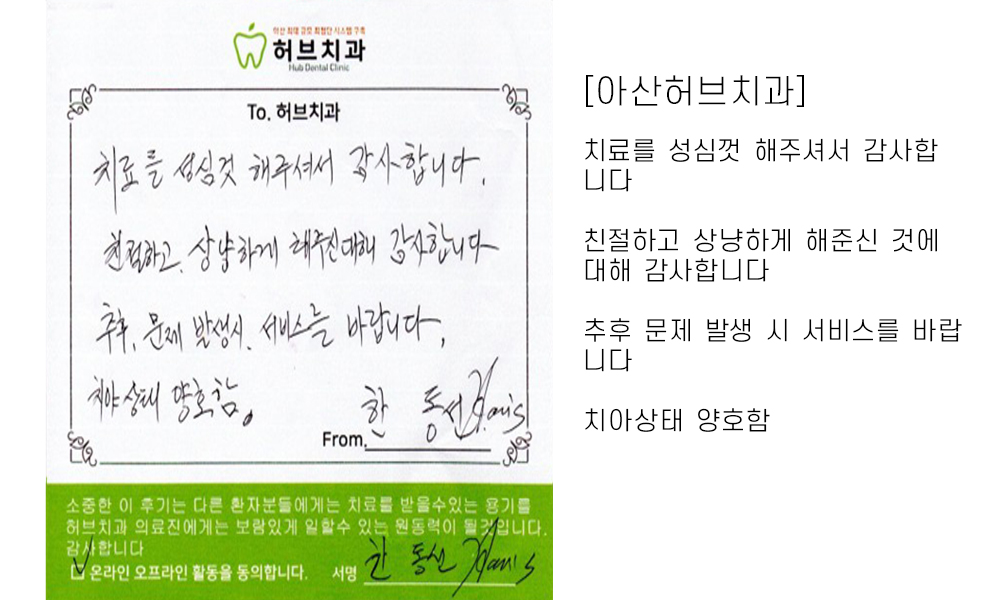 아산 최대 규모 최첨단 시스템 구축
허브치과
Hub Dental Clinic
To. 허브치과
치료를 성심것 해주셔서 감사합니다.
친절하고, 상냥하게 해주신대해 감사합니다
추후, 문제 발생시, 서비스를 바랍니다.
치아상태 양호함.
한 동선
From.
소중한 이 후기는 다른 환자분들에게는 치료를 받을수있는 용기를
허브치과 의료진에게는 보람있게 일할수 있는 원동력이 될것입니다.
감사합니다
온라인 오프라인 활동을 동의합니다. 서명 한 동선
[아산허브치과]
치료를 성심껏 해주셔서 감사합
니다
친절하고 상냥하게 해준신 것에
대해 감사합니다
추후 문제 발생 시 서비스를 바랍
니다
치아상태 양호함